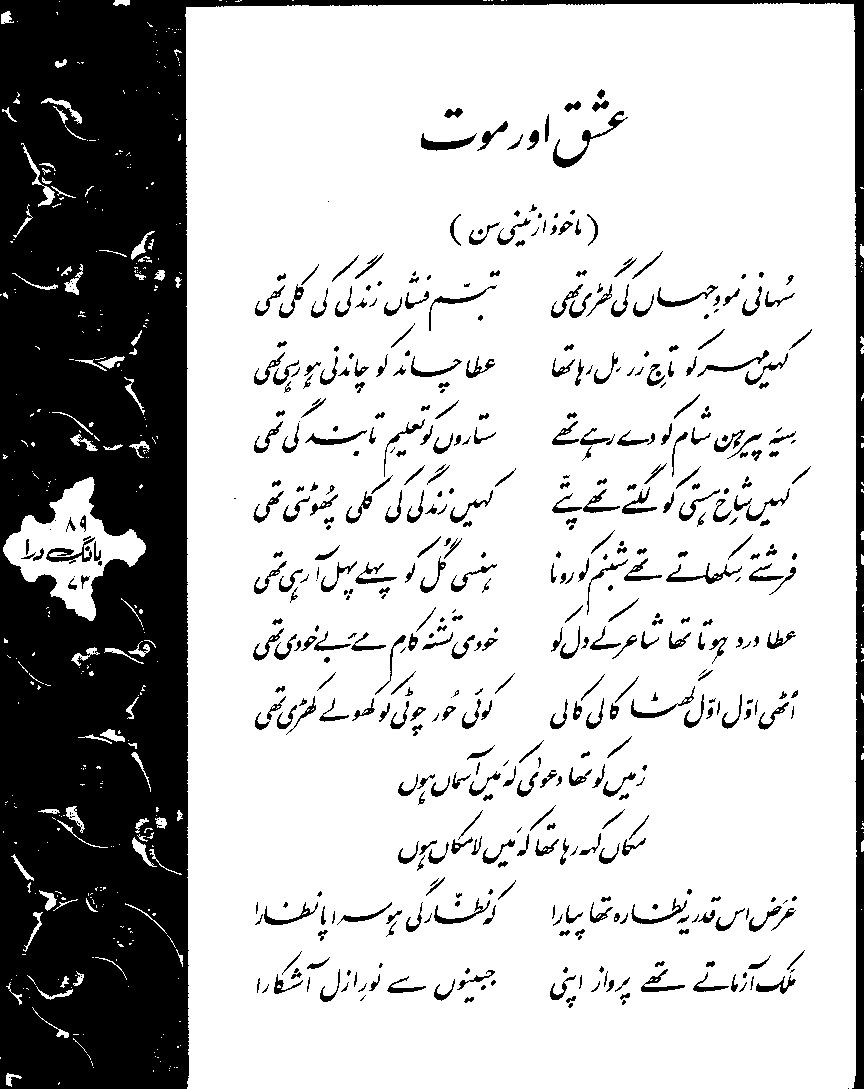 عشق اور موت
(ماخوذ از ٹینی سن)
سُہانی نمودِ جہاں کی گھڑی تھی تبسّم فشاں زندگی کی کلی تھی
کہیں مہر کو تاجِ زر مِل رہا تھا عطا چاند کو چاندنی ہو رہی تھی
سیَہ پیرہن شام کو دے رہے تھے ستاروں کو تعلیمِ تابندگی تھی
کہیں شاخِ ہستی کو لگتے تھے پتّے کہیں زندگی کی کلی پھُوٹتی تھی
فرشتے سِکھاتے تھے شبنم کو رونا ہنسی گُل کو پہلے پہل آ رہی تھی
عطا درد ہوتا تھا شاعر کے دل کو خودی تَشنہ کامِ مئے بے خودی تھی
اُٹھی اوّل اوّل گھٹا کالی کالی کوئی حُور چوٹی کو کھولے کھڑی تھی
زمیں کو تھا دعویٰ کہ مَیں آسماں ہوں
مکاں کہہ رہا تھا کہ مَیں لامکاں ہوں
غَرَض اس قدر یہ نظارہ تھا پیارا کہ نظّارگی ہو سراپا نظارا
مَلَک آزماتے تھے پرواز اپنی جبینوں سے نورِ ازل آشکارا
۸۹
بانگِ درا
۷۳